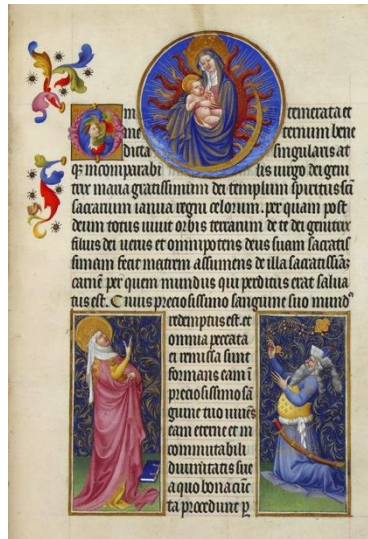 O in temerata et
ine ternum bene
dicta singularis at
q̄ incomparabi lis uirgo dei geni
trix maria gratissimum dei templum spiritus sc̄i
sacrarium ianua regni celorum. per quam post
deum totus uiuit orbis terrarum de te dei genitrix
filius dei uerus et omnipotens deus suam sacratis
simam fecit matrem assumens de illa sacratissiāʒ
carnē per quem mundus qui perditus erat salua
tus est. Cuius preciosissimo sanguine suo mundꝰ
redemptus est. et
omnia peccata
ei remissa sunt
formans eam ī
preciosissimo sā
guine tuo
eam eterne et in
commutabili
diuinitatis sue
a quo bona cūc
ta procedunt ꝑ